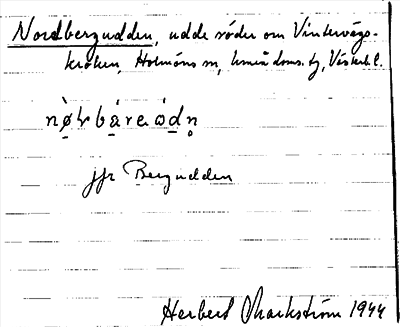 Nordbergudden, udde söder om Vintervägs-
kroken, Holmöns sn, Umeå doms. tg, Västerb. l.
nø̀ɽbá̱re ó̱dn̥
jfr Bergudden
Herbert Markström 1944